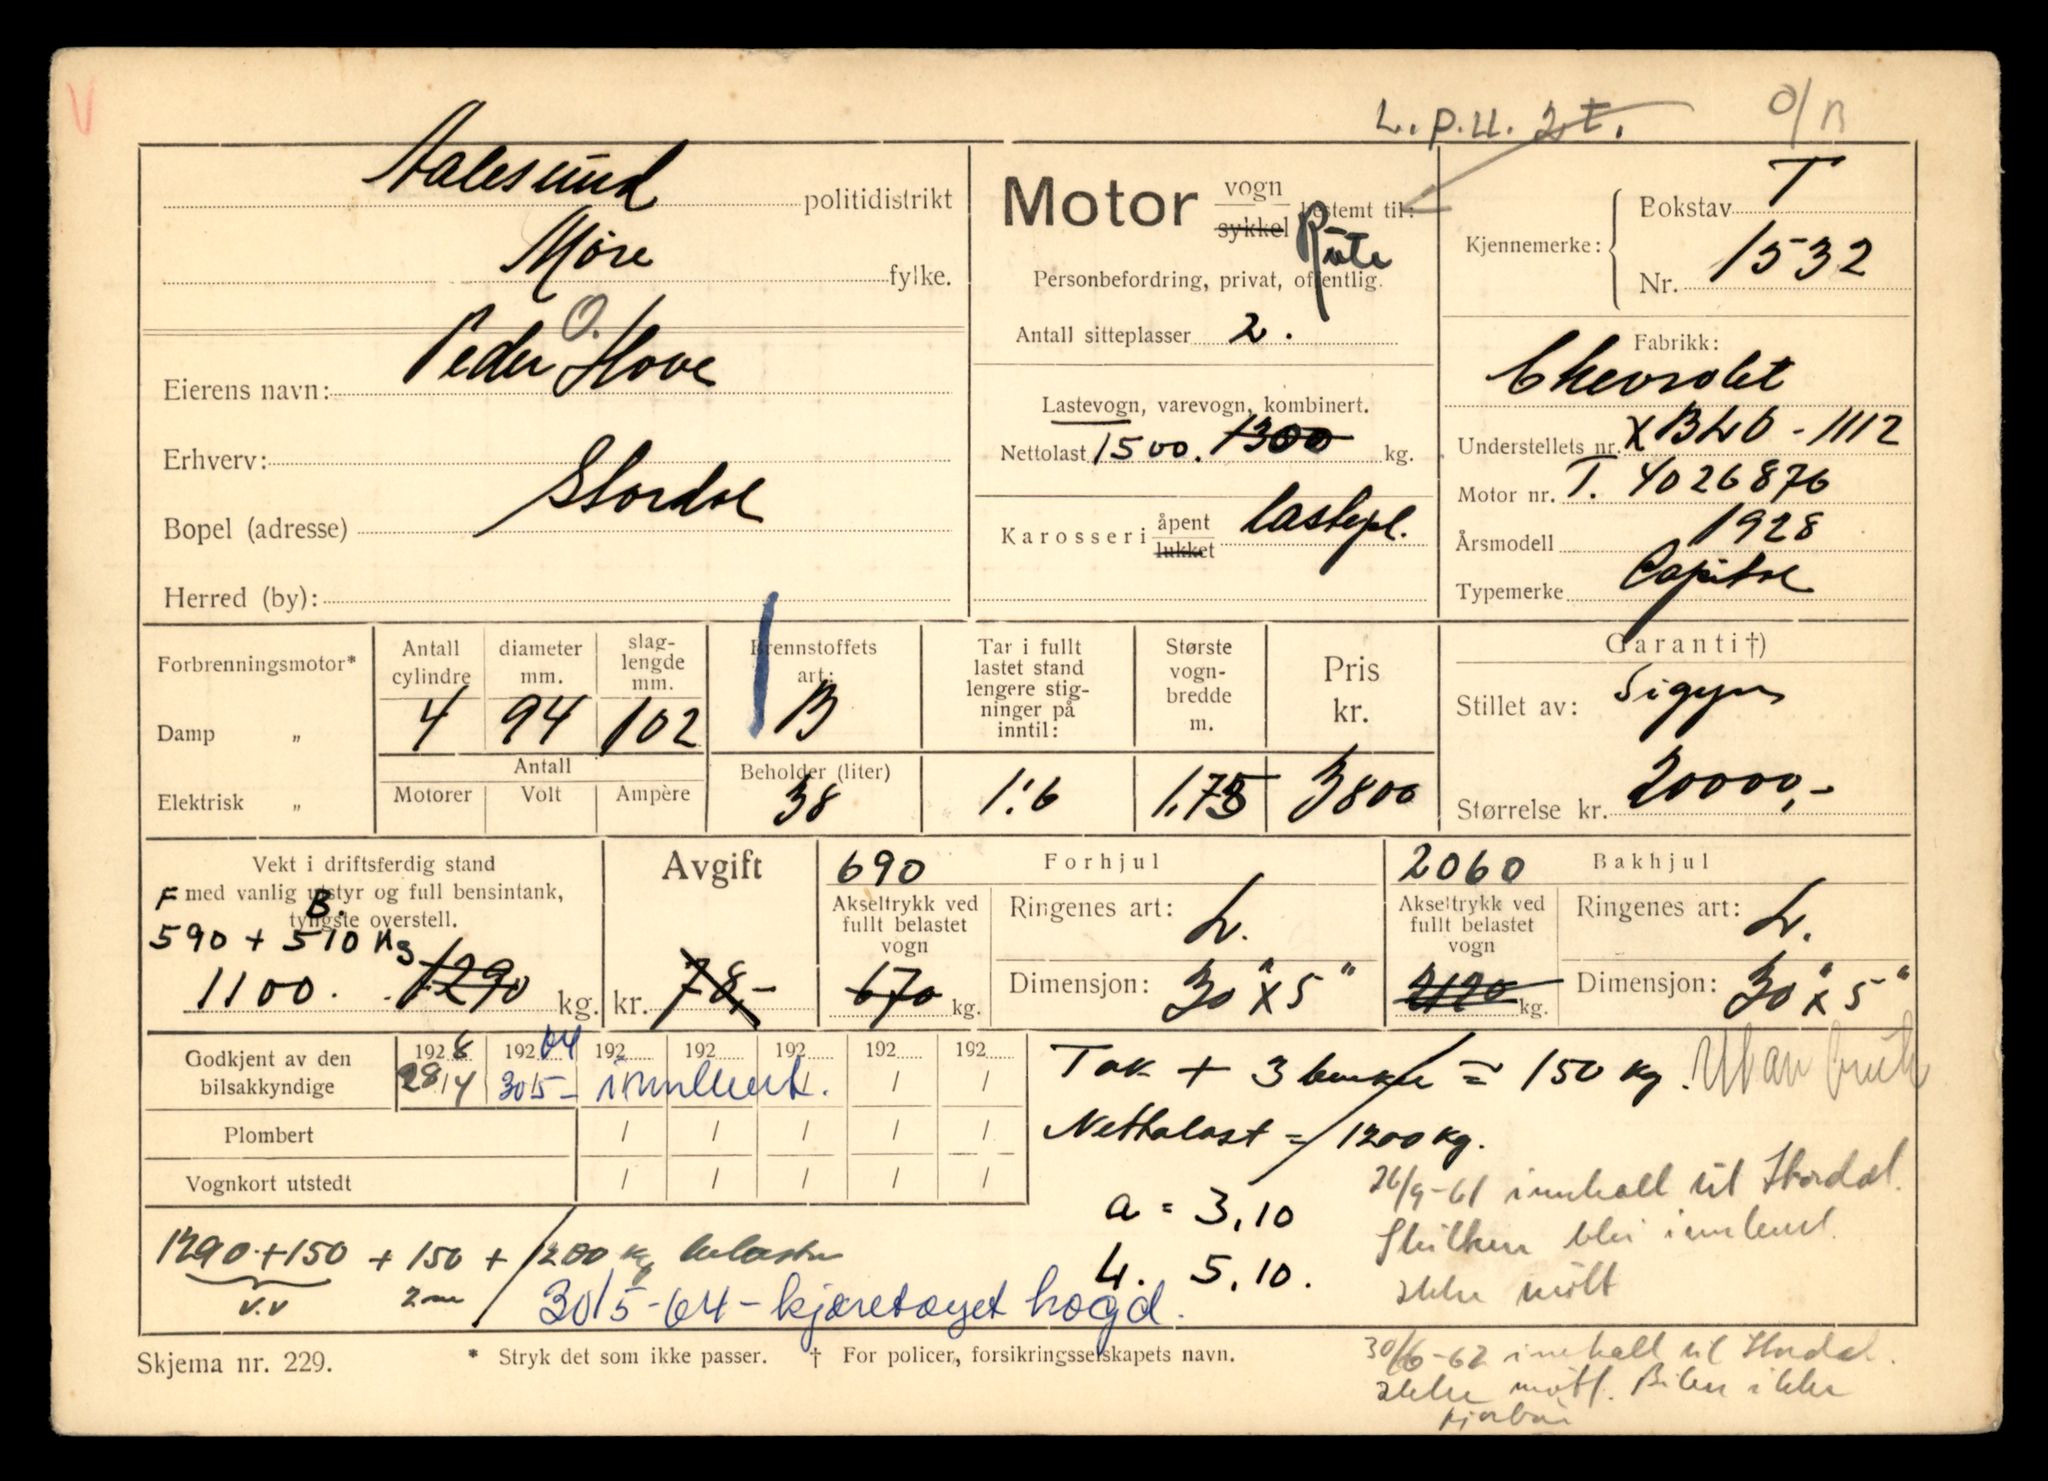 V
L. p. u. 2t.
O/B
Aalesund politidistrikt
Møre fylke.
Eierens navn: Peder O. Hove
Erhverv:
Bopel (adresse) Stordal
Herred (by):
Motor vogn
sykkel bestemt til:
Rute
Personbefordring, privat, offentlig.
Antall sitteplasser 2.
Lastevogn, varevogn, kombinert.
Nettolast 1500. 1300 kg.
Karosseri åpent
lukket lastepl.
Kjennemerke: Bokstav T
Nr. 1532
Fabrikk:
Chevrolet
Understellets nr. XBLO-1112
Motor nr. T. 4026876
Årsmodell 1928
Typemerke Capitol
Forbrenningsmotor*
Damp „
Elektrisk „
Antall cylindre
4
diameter mm.
94
slag-
lengde
mm.
102
Antall
Motorer Volt Ampère
Brennstoffets
art:
B
Beholder (liter)
38
Tar i fullt
lastet stand
lengere stig-
ninger på
inntil:
1:6
Største
vogn-
bredde
m.
1.75
Pris
kr.
3800
Garanti†)
Stillet av: Sigyn
Størrelse kr. 20000,-
Vekt i driftsferdig stand
med vanlig utstyr og full bensintank,
tyngste overstell.
F B.
590 + 510 Kg
1100. 1290 kg.
Avgift
kr. 78,-
690 Forhjul
Akseltrykk ved
fullt belastet
vogn
670 kg.
Ringenes art: L.
Dimensjon: 30" x 5"
2060 Bakhjul
Akseltrykk ved
fullt belastet
vogn
2120 kg.
Ringenes art: L.
Dimensjon: 30" x 5"
Godkjent av den
bilsakkyndige
1928 1964 192 192 192 192 192
28/4 30/5- innlevert. / /
Plombert / / / / /
Vognkort utstedt / / / / /
Tak + 3 benker = 150 kg. Utan bruk
Nettolast = 1200 kg.
a = 3,10
L. 5,10.
26/9-61 innkalt til Stordal.
Skilter blei innlevert.
ikke møtt
1290 + 150 + 150 + 1200 kg belastn
v.v 2 m
30/5-64 - kjøretøyet hogd.
Skjema nr. 229.
* Stryk det som ikke passer. † For policer, forsikringsselskapets navn.
30/6-62 innkalt til Stordal.
ikke møtt. Bilen ikke
kjørbar